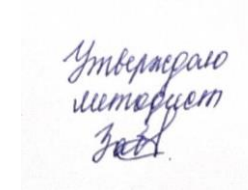 Утверждаю
методист